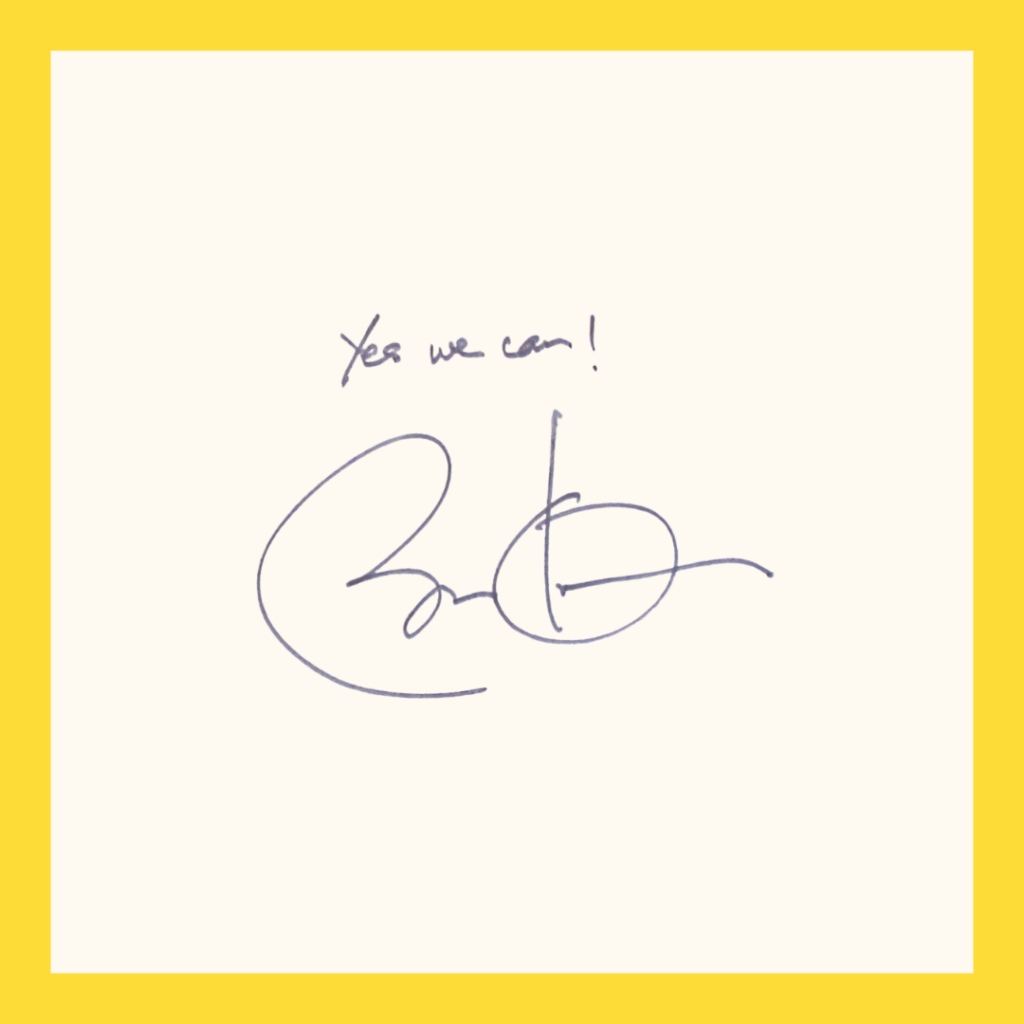 Yes we can!